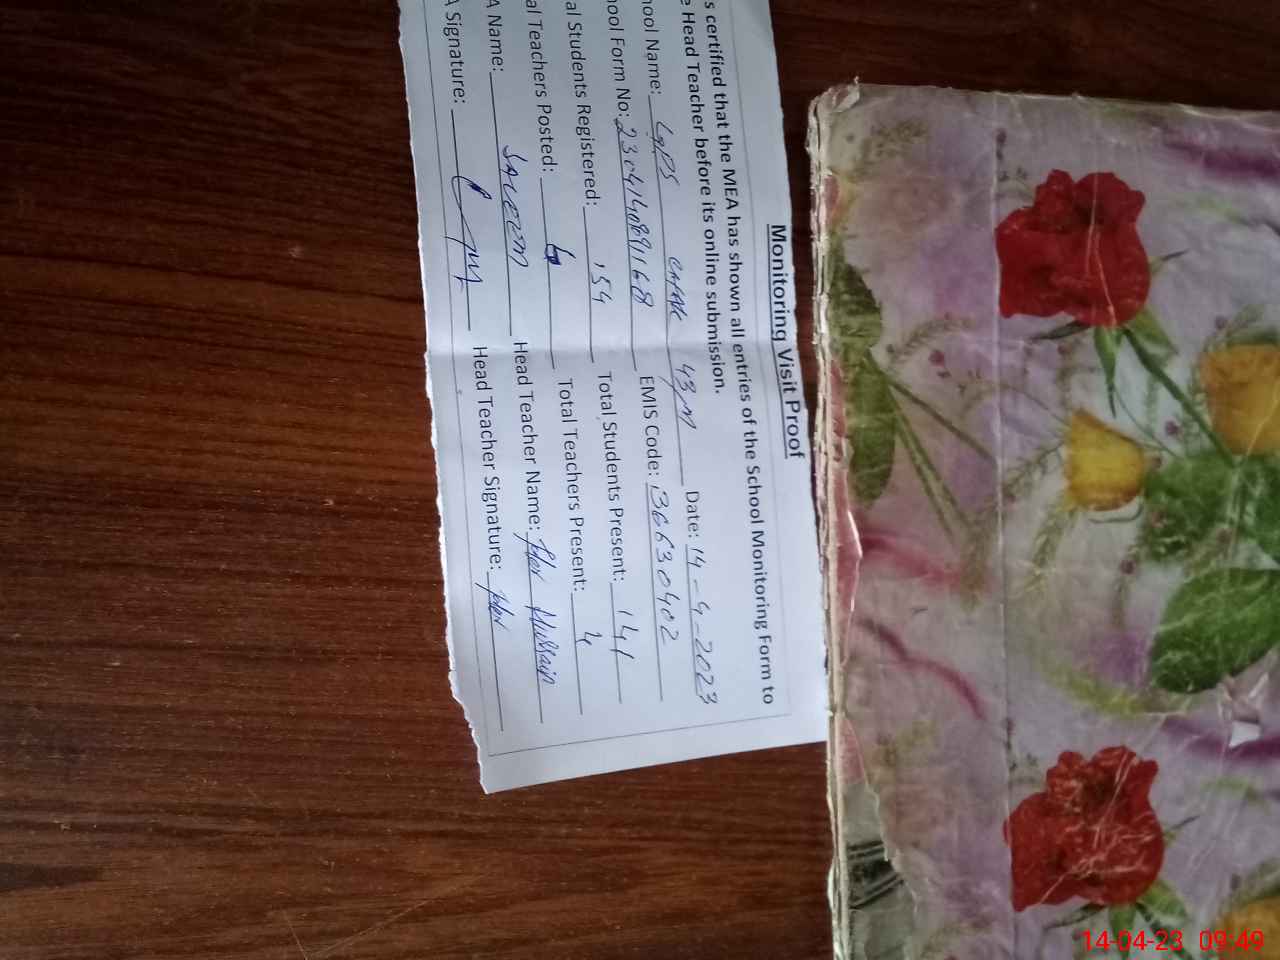 Monitoring Visit Proof
s certified that the MEA has shown all entries of the School Monitoring Form to
e Head Teacher before its online submission.
hool Name: GPS 43/M Date: 14-4-2023
hool Form No: 230414089168 EMIS Code: 36630402
al Students Registered: 154 Total Students Present: 141
al Teachers Posted: Total Teachers Present: 4
A Name: SALEEM Head Teacher Name: Hussain
A Signature: Head Teacher Signature:
14-04-23 09:49